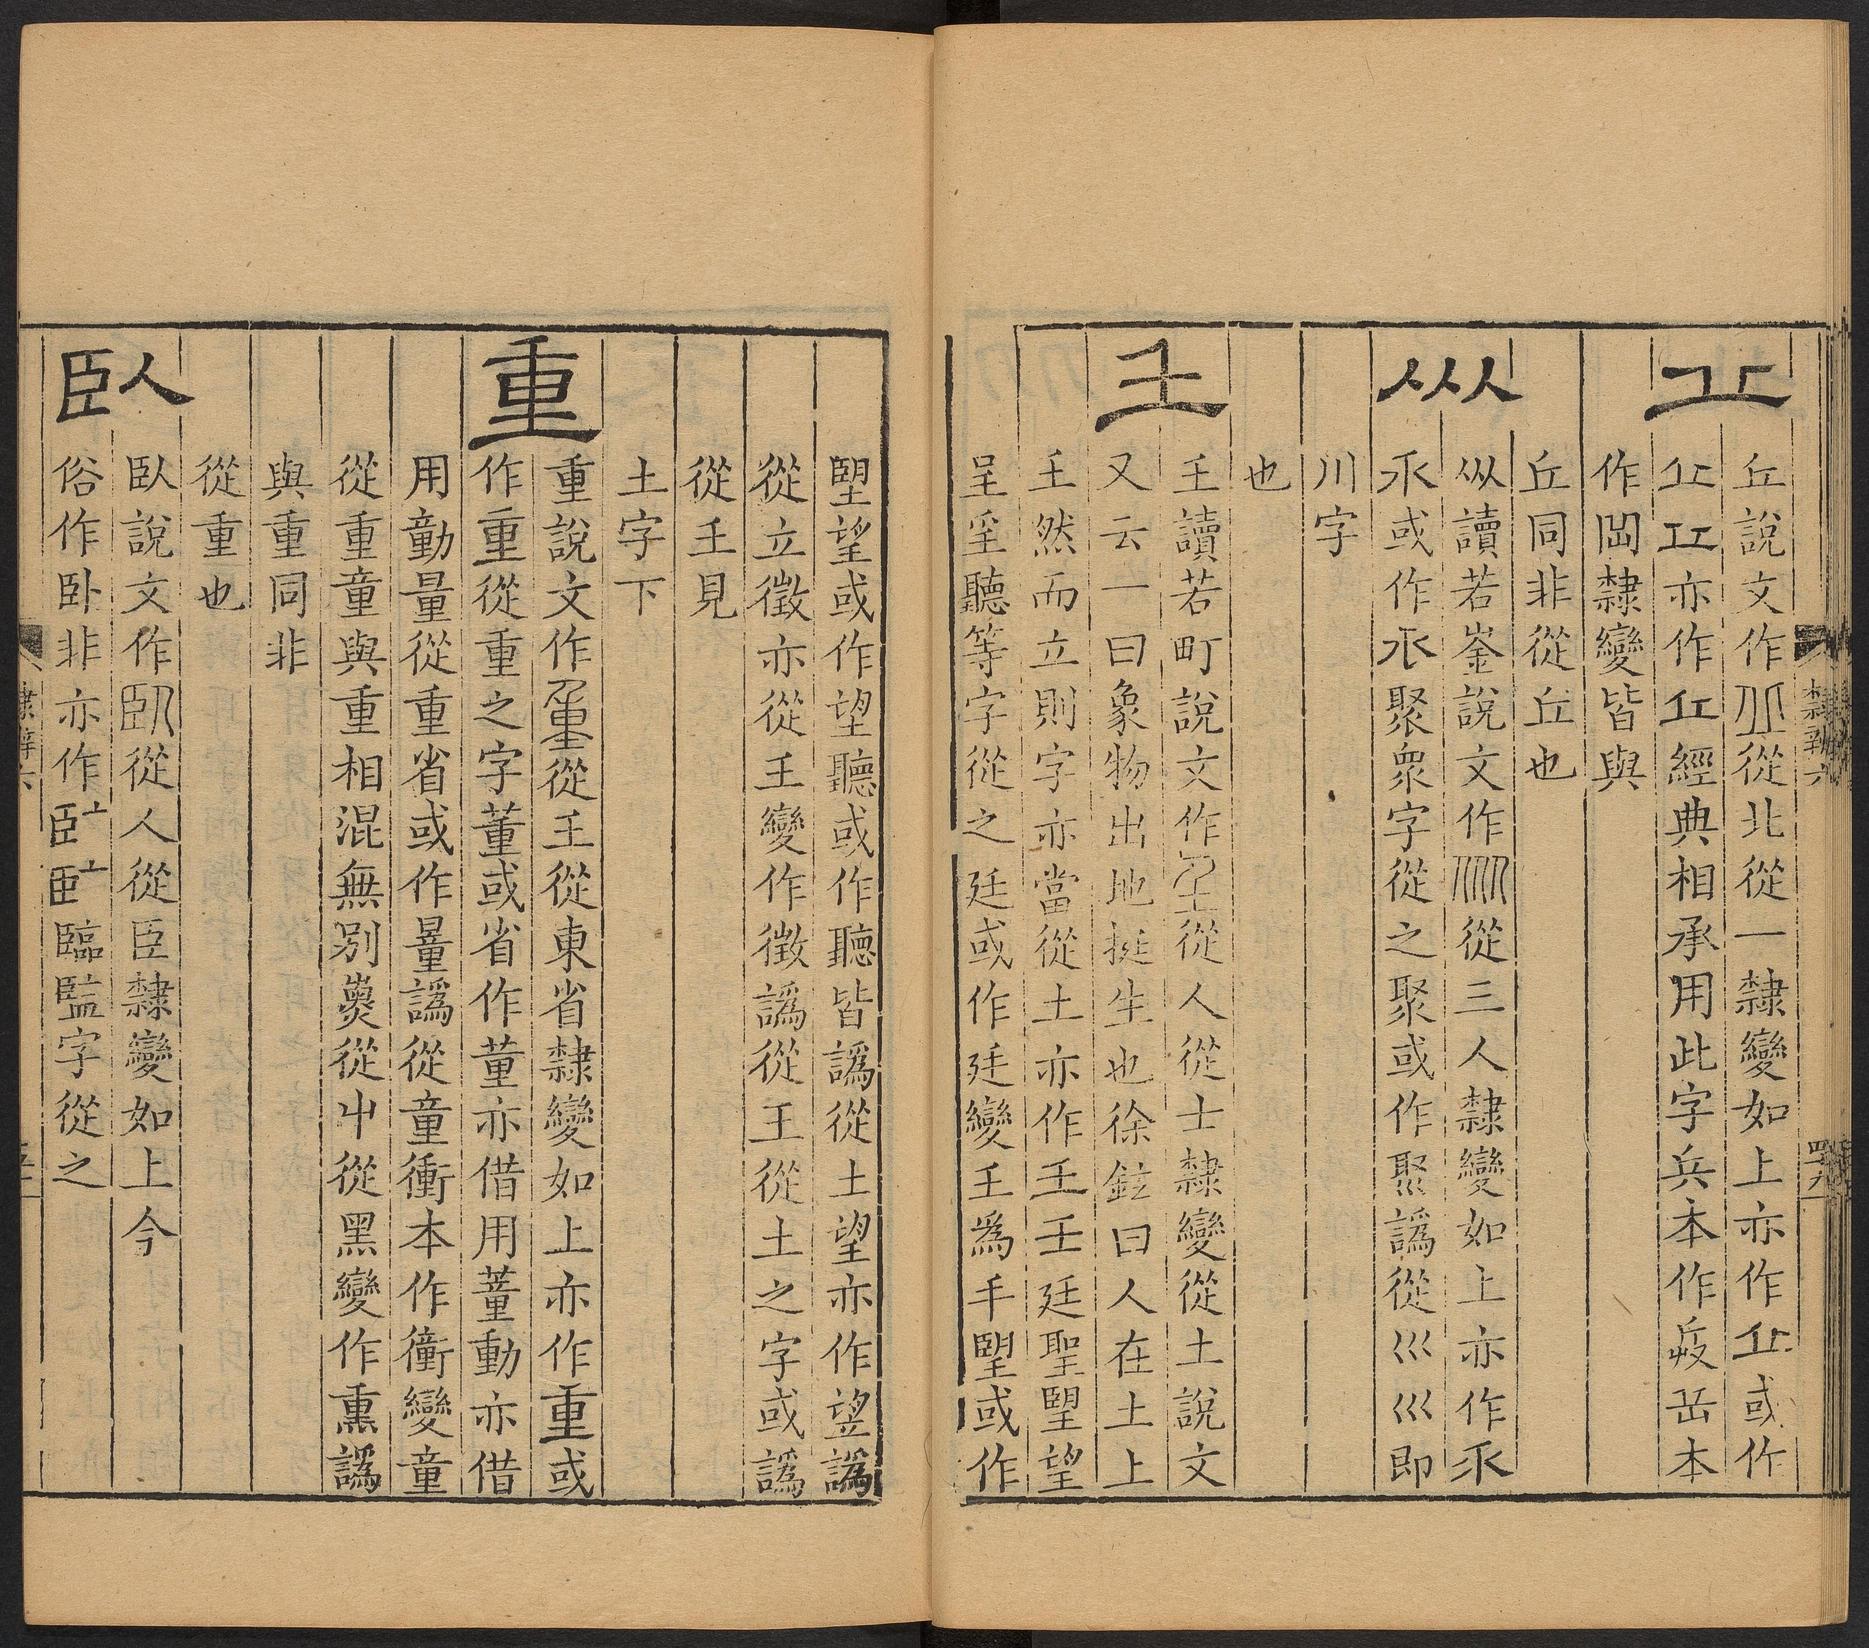 丘說文作從北從一隸變如上亦作㐀或作
㐀亦作經典相承用此字兵本作岳本
作隸變皆與
丘同非從丘也
㐺讀若崟說文作從三人隸變如上亦作乑
乑或作聚衆字從之聚或作譌從巛巛即
川字
也
𡈼讀若町說文作從人從士隸變從土說文
又云一曰象物出地挺生也徐鉉曰人在土上
𡈼然而立則字亦當從土亦作𡈼壬廷聖朢望
呈聽等字從之廷或作廷變𡈼為手朢或作
朢望或作望聽或作聽皆譌從土望亦作望譌
從立徵亦從𡈼變作徵譌從王從土之字或譌
從𡈼見
土字下
重說文作從𡈼從東省隸變如上亦作重或
作重從重之字董或省作董亦借用董動亦借
用勭量從重省或作量譌從童衝本作衝變童
從重童與重相混無別𤎅從屮從黑變作熏譌
與重同非
從重也
臥說文作從人從臣隸變如上今
俗作卧非亦作臨監字從之
重
臥
隸辨六
四九